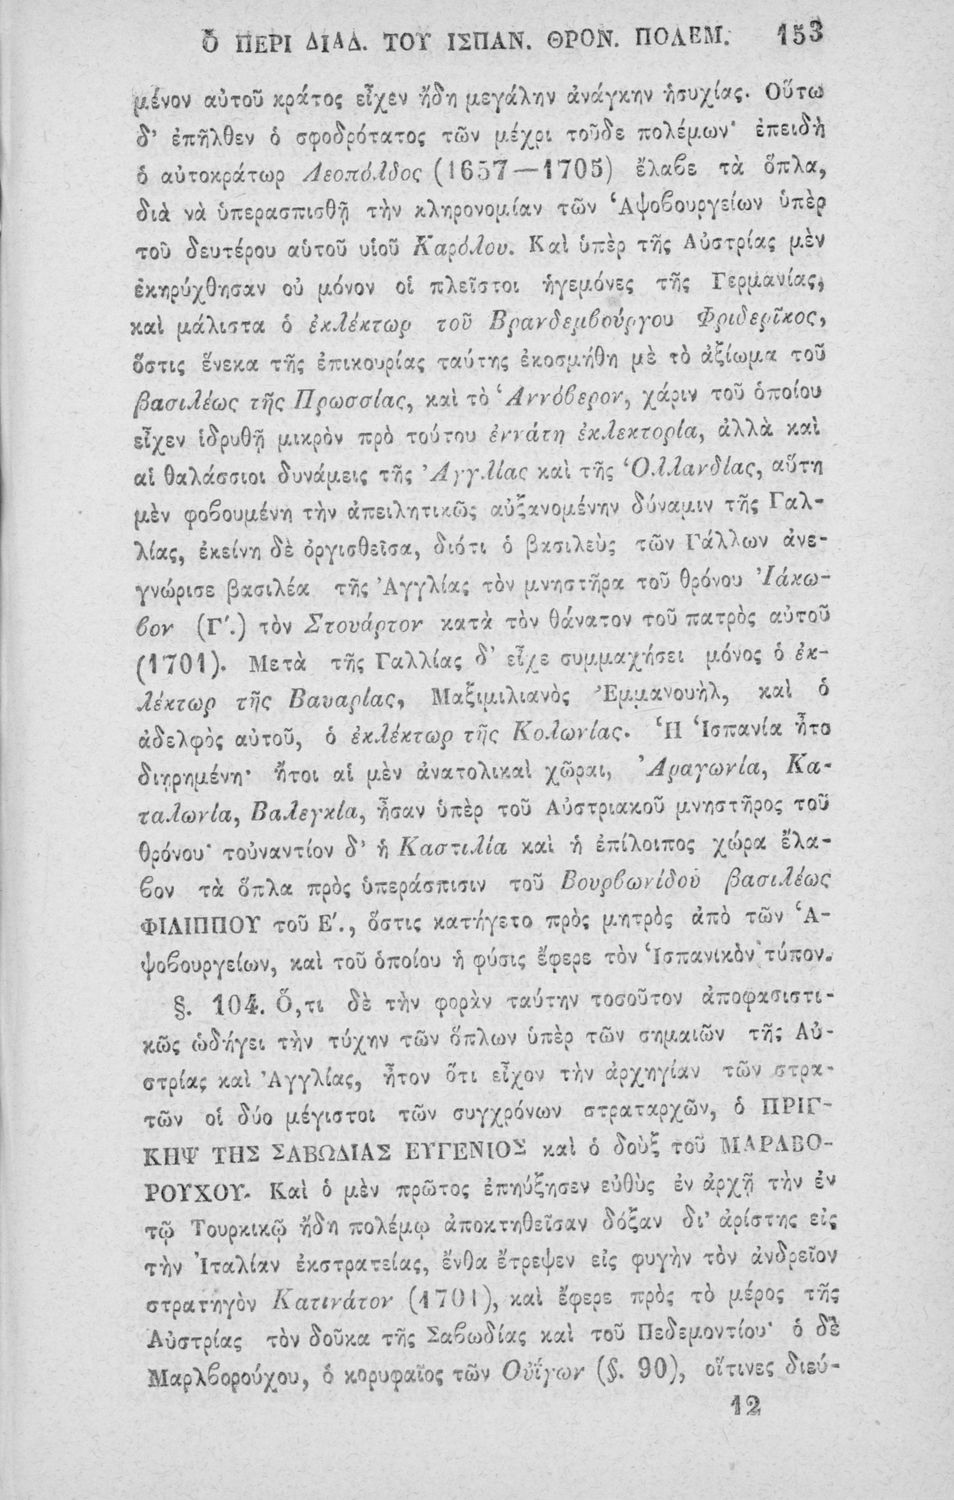 Ὁ ΠΕΡΙ ΔΙΑΔ. ΤΟΥ ΙΣΠΑΝ. ΘΡΟΝ. ΠΟΛΕΜ. 153
μένον αὐτοῦ κράτος εἶχεν ἤδη μεγάλην ἀνάγκην ἡσυχίας. Οὕτω
δ' ἐπῆλθεν ὁ σφοδρότατος τῶν μέχρι τοῦδε πολέμων· ἐπειδὴ
ὁ αὐτοκράτωρ Λεοπόλδος (1657—1705) ἔλαβε τὰ ὅπλα,
διὰ νὰ ὑπερασπισθῇ τὴν κληρονομίαν τῶν Ἁψοβουργείων ὑπὲρ
τοῦ δευτέρου αὑτοῦ υἱοῦ Καρόλου. Καὶ ὑπὲρ τῆς Αὐστρίας μὲν
ἐκηρύχθησαν οὐ μόνον οἱ πλεῖστοι ἡγεμόνες τῆς Γερμανίας,
καὶ μάλιστα ὁ ἐκλέκτωρ τοῦ Βρανδεμβούργου Φριδερῖκος,
ὅστις ἕνεκα τῆς ἐπικουρίας ταύτης ἐκοσμήθη μὲ τὸ ἀξίωμα τοῦ
βασιλέως τῆς Πρωσσίας, καὶ τὸ Ἁννόβερον, χάριν τοῦ ὁποίου
εἶχεν ἱδρυθῇ μικρὸν πρὸ τούτου ἐννάτη ἐκλεκτορία, ἀλλὰ καὶ
αἱ θαλάσσιοι δυνάμεις τῆς Ἀγγλίας καὶ τῆς Ὁλλανδίας, αὕτη
μὲν φοβουμένη τὴν ἀπειλητικῶς αὐξανομένην δύναμιν τῆς Γαλ-
λίας, ἐκείνη δὲ ὀργισθεῖσα, διότι ὁ βασιλεὺς τῶν Γάλλων ἀνε-
γνώρισε βασιλέα τῆς Ἀγγλίας τὸν μνηστῆρα τοῦ θρόνου Ἰάκω-
βον (Γ'.) τὸν Στουάρτον κατὰ τὸν θάνατον τοῦ πατρὸς αὐτοῦ
(1701). Μετὰ τῆς Γαλλίας δ' εἶχε συμμαχήσει μόνος ὁ ἐκ-
λέκτωρ τῆς Βαυαρίας, Μαξιμιλιανὸς Ἐμμανουὴλ, καὶ ὁ
ἀδελφὸς αὐτοῦ, ὁ ἐκλέκτωρ τῆς Κολωνίας. Ἡ Ἱσπανία ἦτο
διῃρημένη· ἤτοι αἱ μὲν ἀνατολικαὶ χῶραι, Ἀραγωνία, Κα-
ταλωνία, Βαλεγκία, ἦσαν ὑπὲρ τοῦ Αὐστριακοῦ μνηστῆρος τοῦ
θρόνου· τοὐναντίον δ' ἡ Καστιλία καὶ ἡ ἐπίλοιπος χώρα ἔλα-
βον τὰ ὅπλα πρὸς ὑπεράσπισιν τοῦ Βουρβωνίδου βασιλέως
ΦΙΛΙΠΠΟΥ τοῦ Ε'., ὅστις κατήγετο πρὸς μητρὸς ἀπὸ τῶν Ἁ-
ψοβουργείων, καὶ τοῦ ὁποίου ἡ φύσις ἔφερε τὸν Ἱσπανικὸν τύπον.
§. 104. Ὅ,τι δὲ τὴν φορὰν ταύτην τοσοῦτον ἀποφασιστι-
κῶς ὡδήγει τὴν τύχην τῶν ὅπλων ὑπὲρ τῶν σημαιῶν τῆς Αὐ-
στρίας καὶ Ἀγγλίας, ἦτον ὅτι εἶχον τὴν ἀρχηγίαν τῶν στρα-
τῶν οἱ δύο μέγιστοι τῶν συγχρόνων στραταρχῶν, ὁ ΠΡΙΓ-
ΚΗΨ ΤΗΣ ΣΑΒΩΔΙΑΣ ΕΥΓΕΝΙΟΣ καὶ ὁ δοὺξ τοῦ ΜΑΡΛΒΟ-
ΡΟΥΧΟΥ. Καὶ ὁ μὲν πρῶτος ἐπηύξησεν εὐθὺς ἐν ἀρχῇ τὴν ἐν
τῷ Τουρκικῷ ἤδη πολέμῳ ἀποκτηθεῖσαν δόξαν δι' ἀρίστης εἰς
τὴν Ἰταλίαν ἐκστρατείας, ἔνθα ἔτρεψεν εἰς φυγὴν τὸν ἀνδρεῖον
στρατηγὸν Κατινάτον (1701), καὶ ἔφερε πρὸς τὸ μέρος τῆς
Αὐστρίας τὸν δοῦκα τῆς Σαβωδίας καὶ τοῦ Πεδεμοντίου· ὁ δὲ
Μαρλβορούχου, ὁ κορυφαῖος τῶν Οὐΐγων (§. 90), οἵτινες διεύ-
12